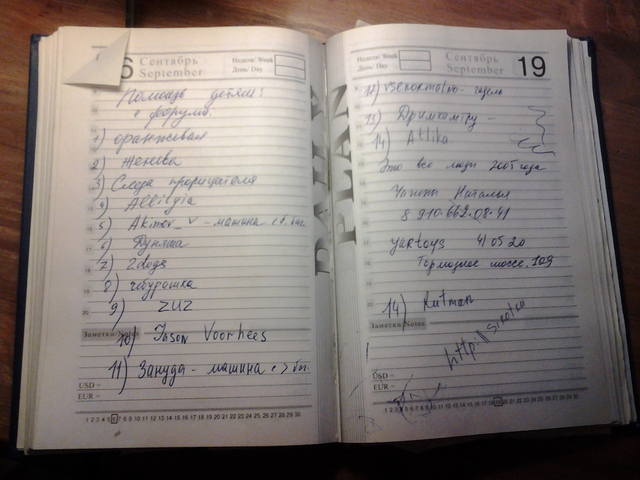 6 Сентябрь
September
Неделя/ Week
День/ Day
Помощь детям!
с форума.
1) оранжевая
2) Женева
3) Слеза прорицателя
4)
5) Akimov_v - машина
6) Дуняша
7) 2dogs
8) чебурашка
9) ZUZ
Заметки/Notes
10) Jason Voorhees
11) Зануда - машина
USD =
EUR =
1 2 3 4 5 6 7 8 9 10 11 12 13 14 15 16 17 18 19 20 21 22 23 24 25 26 27 28 29 30
DAILY
PLAN
Неделя/ Week
День/ Day
Сентябрь
September
19
12) vsenormalno -
13)
14) Attika
Это все люди 2005 года
Наталья
8 910.662.08.41
yartoys 41 05 20
Тормозное шоссе, 109
14) Rutman
Заметки/Notes
http://
USD =
EUR =
1 2 3 4 5 6 7 8 9 10 11 12 13 14 15 16 17 18 19 20 21 22 23 24 25 26 27 28 29 30